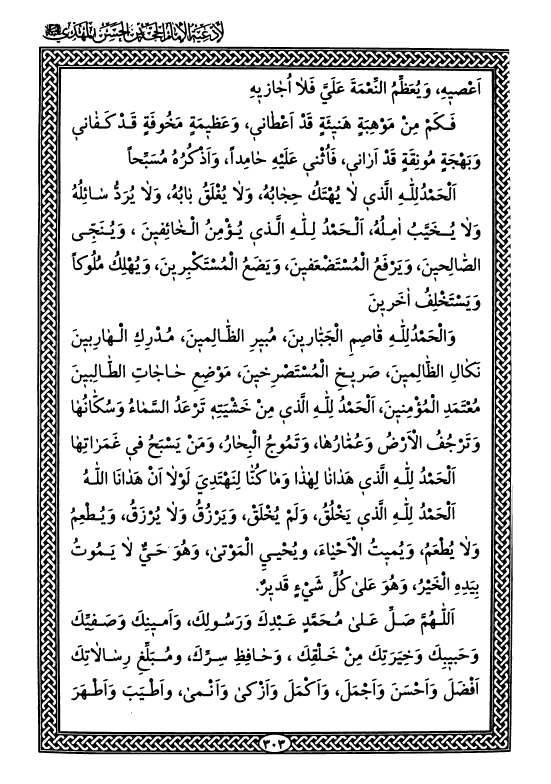 لأدعية الإمام الحجة بن الحسن المهدي
اَعْصيهِ، وَيُعَظِّمُ النِّعْمَةَ عَلَيَّ فَلا اُجازيهِ
فَـكَمْ مِنْ مَوْهِبَةٍ هَنيئَةٍ قَدْ اَعْطاني، وَعَظيمَةٍ مَخُوفَةٍ قَـدْ كَـفاني
وَبَهْجَةٍ مُونِقَةٍ قَدْ اَراني، فَاُثْني عَلَيْهِ حامِداً، وَاَذْكُرُهُ مُسَبِّحاً
اَلْحَمْدُلِلّٰهِ الَّذي لا يُهْتَكُ حِجابُهُ، وَلا يُغْلَقُ بابُهُ، وَلا يُرَدُّ سائِلُهُ
وَلا يُـخَيَّبُ امِلُهُ، اَلْحَمْدُ لِـلّٰهِ الَّـذي يُـؤْمِنُ الْـخائِفينَ ، وَيُـنَجِّى
الصّالِحينَ، وَيَرْفَعُ الْمُسْتَضْعَفينَ، وَيَضَعُ الْمُسْتَكْبِرينَ، وَيُهْلِكُ مُلُوكاً
وَيَسْتَخْلِفُ اخَرينَ
وَالْحَمْدُلِلّٰهِ قاصِمِ الْجَبّارينَ، مُبيرِ الظّـالِمينَ، مُـدْرِكِ الْـهارِبينَ
نَكالِ الظّالِمينَ، صَريخِ الْمُسْتَصْرِخينَ، مَوْضِعِ حـاجاتِ الطّـالِبينَ
مُعْتَمَدِ الْمُؤْمِنينَ، اَلْحَمْدُ لِلّٰهِ الَّذي مِنْ خَشْيَتِهِ تَرْعَدُ السَّماءُ وَسُكّانُها
وَتَرْجُفُ الْاَرْضُ وَعُمّارُها، وَتَمُوجُ الْبِحارُ، وَمَنْ يَسْبَحُ في غَمَراتِها
اَلْحَمْدُ لِلّٰهِ الَّذي هَدانا لِهٰذا وَما كُنّا لِنَهْتَدِيَ لَوْلا اَنْ هَدانَا اللّٰهُ
اَلْحَمْدُ لِلّٰهِ الَّذي يَخْلُقُ، وَلَمْ يُخْلَقْ، وَيَرْزُقُ وَلا يُرْزَقُ، وَيُـطْعِمُ
وَلا يُطْعَمُ، وَيُميتُ الْاَحْياءَ، ويُحْيِي الْمَوْتى، وَهُوَ حَيٌّ لا يَـمُوتُ
بِيَدِهِ الْخَيْرُ، وَهُوَ عَلى كُلِّ شَيْءٍ قَديرٌ.
اَللّٰهُمَّ صَلِّ عَـلى مُـحَمَّدٍ عَـبْدِكَ وَرَسُولِكَ، وَاَمـينِكَ وَصَـفِيِّكَ
وَحَبيبِكَ وَخِيَرَتِكَ مِنْ خَـلْقِكَ ، وَحـافِظِ سِـرِّكَ، ومُـبَلِّغِ رِسـالاتِكَ
اَفْضَلَ وَاَحْسَنَ وَاَجْمَلَ، وَاَكْمَلَ وَاَزْكى وَاَنْـمى، واَطْـيَبَ وَاَطْـهَرَ
٣٠٣